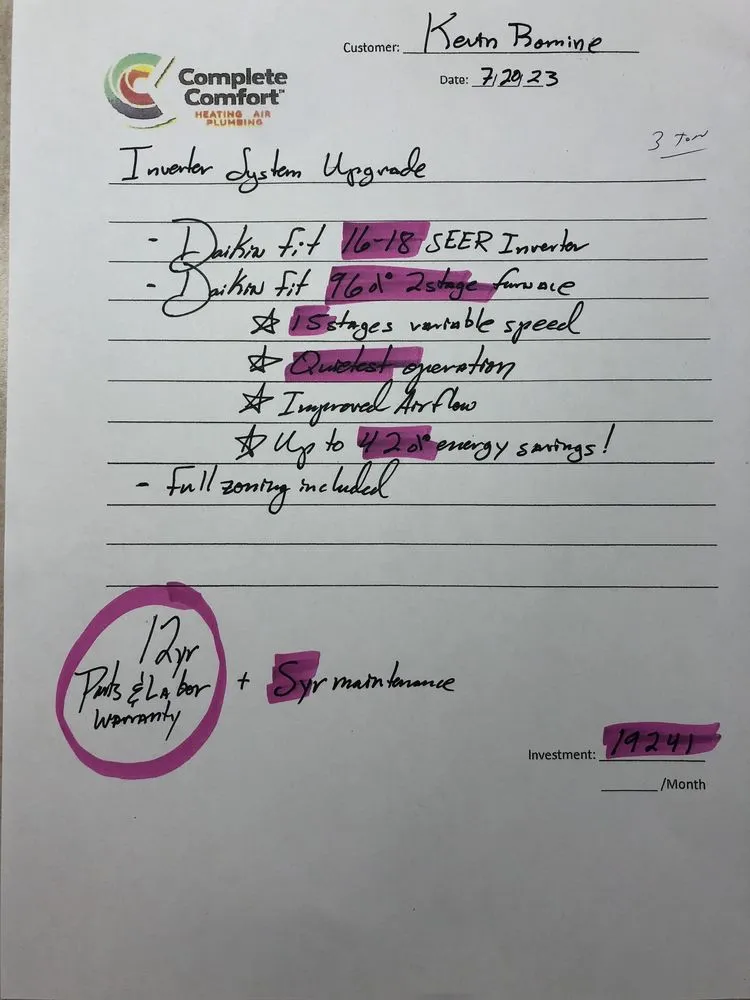 Customer: Kevin Bomine
Date: 7/20/23
Complete
Comfort™
HEATING AIR
PLUMBING
3 Ton
Inverter System Upgrade
- Daikin fit 16-18 SEER Inverter
- Daikin fit 96% 2stage furnace
☆ 15 stages variable speed
☆ Quietest operation
☆ Improved Airflow
☆ Up to 42% energy savings!
- Full zoning included
12yr
Parts & Labor
Warranty
+ 5yr maintenance
Investment: 19241
/Month